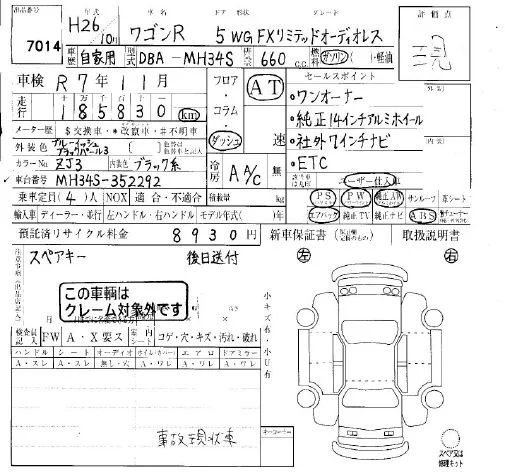 出品番号 年式 車名 ドア 形状 グレード 評価点
7014 H26 10月 ワゴンR 5 WG FXリミテッドオーディオレス
歴 自家用 型式 DBA-MH34S 排気 660 c.c. 燃料 ガソリン・軽油
車検 R 7年 11月 フロア・コラム・ダッシュ AT 速 セールスポイント
走行 十万 万 千 百 十 一
185830 km
・ワンオーナー
・純正14インチアルミホイール
・社外7インチナビ
・ETC
ユーザー仕入車
メーター歴 $交換車・*改竄車・#不明車
外装色 ブルーイッシュブラックパール3
カラーNo ZJ3 内装色 ブラック系
冷房 A A/C 無
車台番号 MH34S-352292
乗車定員(4)人 NOX 適合・不適合 積載量 kg
PS PW 純正AW サンルーフ 革シート
エアバック 純正TV 純正ナビ ABS
輸入車 ディーラー・並行 左ハンドル・右ハンドル モデル年式( )年
預託済リサイクル料金 8930円 新車保証書 取扱説明書
スペアキー 後日送付
この車輌は
クレーム対象外です
左 右
小キズ有・小U有
検査員記入 FW A・X要ス 室内シート コゲ・穴・キズ・汚れ・破れ
ハンドル シート オーディオ ホイル・カバー エアロ ドアミラー
A・スレ A・スレ 無し・穴 A・ワレ A・ワレ A・ワレ
事故現状車
キーナンバー
スペア又は
修理キット